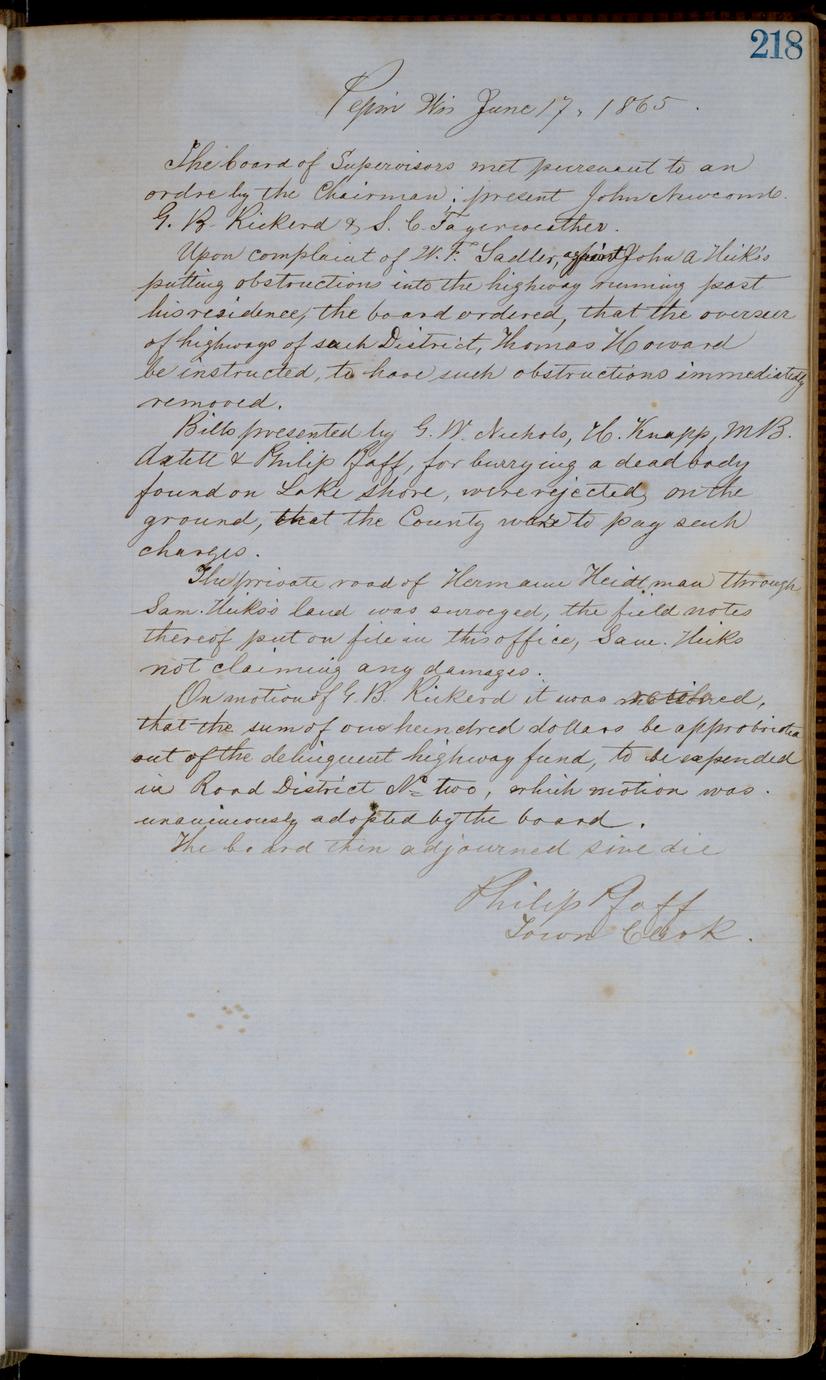 218
Pepin Wis June 17, 1865.
The board of Supervisors met pursuant to an
ordre by the Chairman; present John Newcomb.
G. B. Kickerd & S. C. Fayerweather.
Upon complaint of W. F. Sadler, against John A Heik's
putting obstructions into the highway running past
his residence, the board ordered, that the overseer
of highways of such District, Thomas Howard
be instructed, to have such obstructions immediately
removed.
Bills presented by G. W. Nichols, H. Knapp, M. B.
Axtell & Philip Pfaff, for burrying a dead body
found on Lake shore, were rejected, on the
ground, that the County were to pay such
charges.
The private road of Hermann Heidtman through
Sam. Heiks's land was surveyed, the field notes
thereof put on file in this office, Sam. Heiks
not claiming any damages.
On motion of G. B. Kickerd it was
that the sum of one heindred dollars be approbriatea
out of the delinquent highway fund, to be expended
in Road District No two, which motion was.
unanimously adopted by the board.
The board then adjourned sine die
Philip Pfaff
Town Clerk.